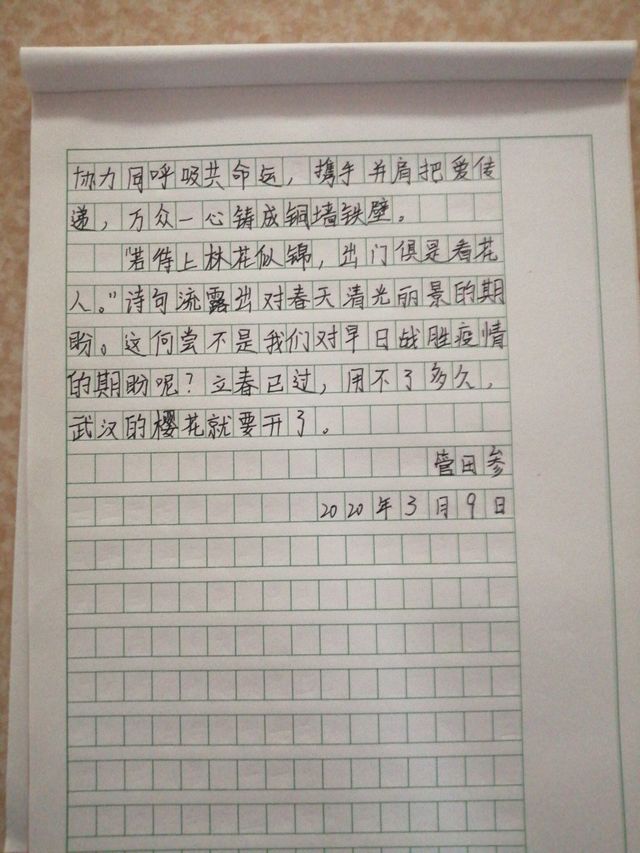 协力同呼吸共命运，携手并肩把爱传
递，万众一心铸成铜墙铁壁。
“若待上林花似锦，出门俱是看花
人。”诗句流露出对春天清光丽景的期
盼。这何尝不是我们对早日战胜疫情
的期盼呢？立春已过，用不了多久，
武汉的樱花就要开了。
管田参
2020年3月9日